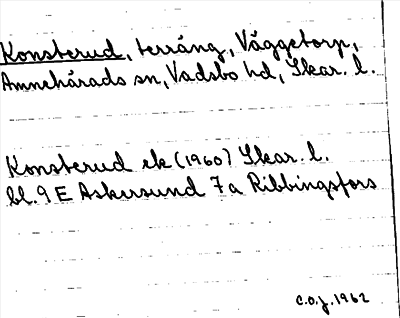 Konsterud, terräng, Väggetorp,
Amnehärads sn, Vadsbo hd, Skar. l.
Konsterud ek (1960) Skar. l.
bl. 9 E Askersund 7a Ribbingsfors
C.O.J. 1962